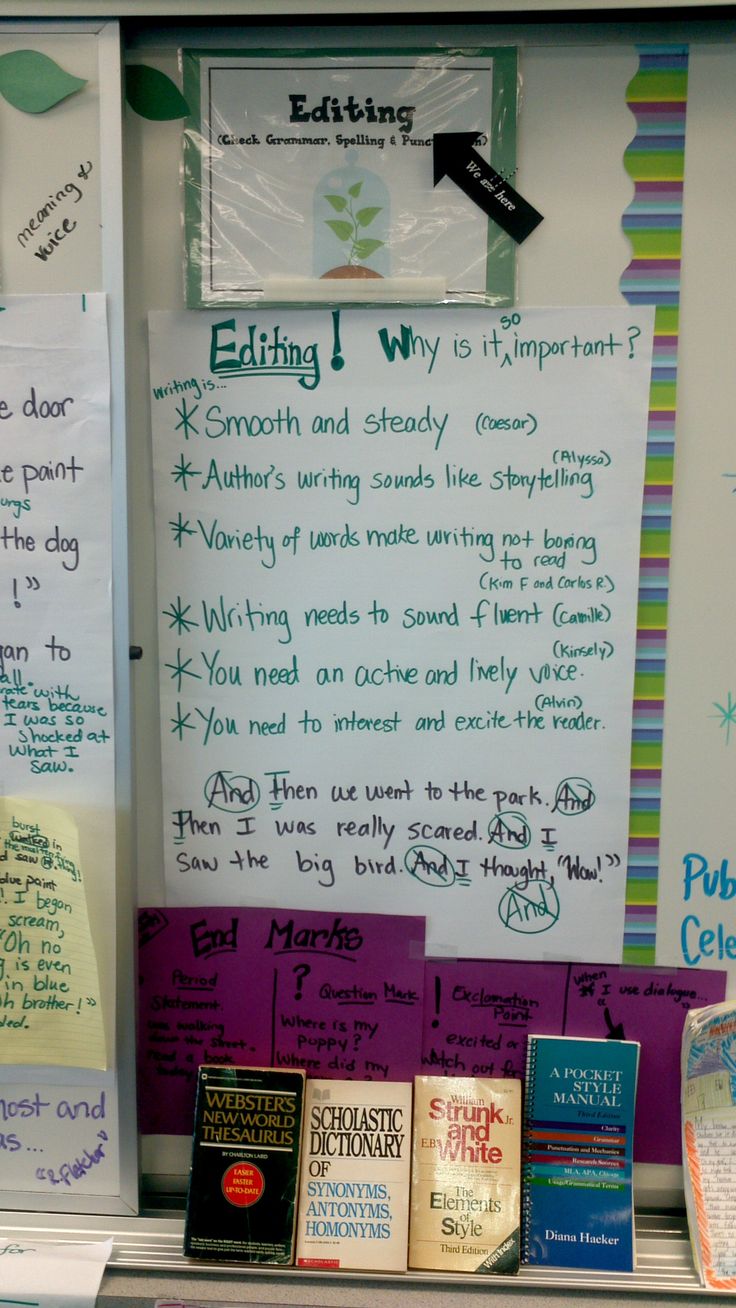 Editing
(Check Grammar, Spelling &
We are here
meaning &
voice
Editing! Why is it so important?
Writing is...
* Smooth and steady (Caesar)
(Alyssa)
* Author's writing sounds like storytelling
* Variety of words make writing not boring
to read
(Kim F and Carlos R.)
* Writing needs to sound fluent (Camille)
(Kinsely)
* You need an active and lively voice.
(Alvin)
* You need to interest and excite the reader.
And Then we went to the park. And
Then I was really scared. And I
saw the big bird. And I thought, "Wow!"
And
e door
e paint
the dog
!"
an to
all.
with
tears because
I was so
shocked at
what I
saw.
burst
walked in
saw
blue paint
! I began
scream,
"Oh no
g is even
in blue
h brother!"
ded.
most and
as...
"R. Fletcher"
for
End Marks
Period
Statement
walking
down the street.
read a book
today
?
Question Mark
Where is my
puppy?
Where did my
!
Exclamation
Point
excited or
watch out for
When
If I use dialogue...
Pub
Cele
WEBSTER'S
NEW WORLD
THESAURUS
BY CHARLTON LAIRD
EASIER
FASTER
UP-TO-DATE
SCHOLASTIC
DICTIONARY
OF
SYNONYMS,
ANTONYMS,
HOMONYMS
SCHOLASTIC
William
Strunk Jr.
and
E.B. White
The
Elements
of
Style
Third Edition
With Index
A POCKET
STYLE
MANUAL
Third Edition
Clarity
Grammar
Punctuation and Mechanics
Research Sources
MLA, APA, Chicago
Usage/Grammatical Terms
Diana Hacker